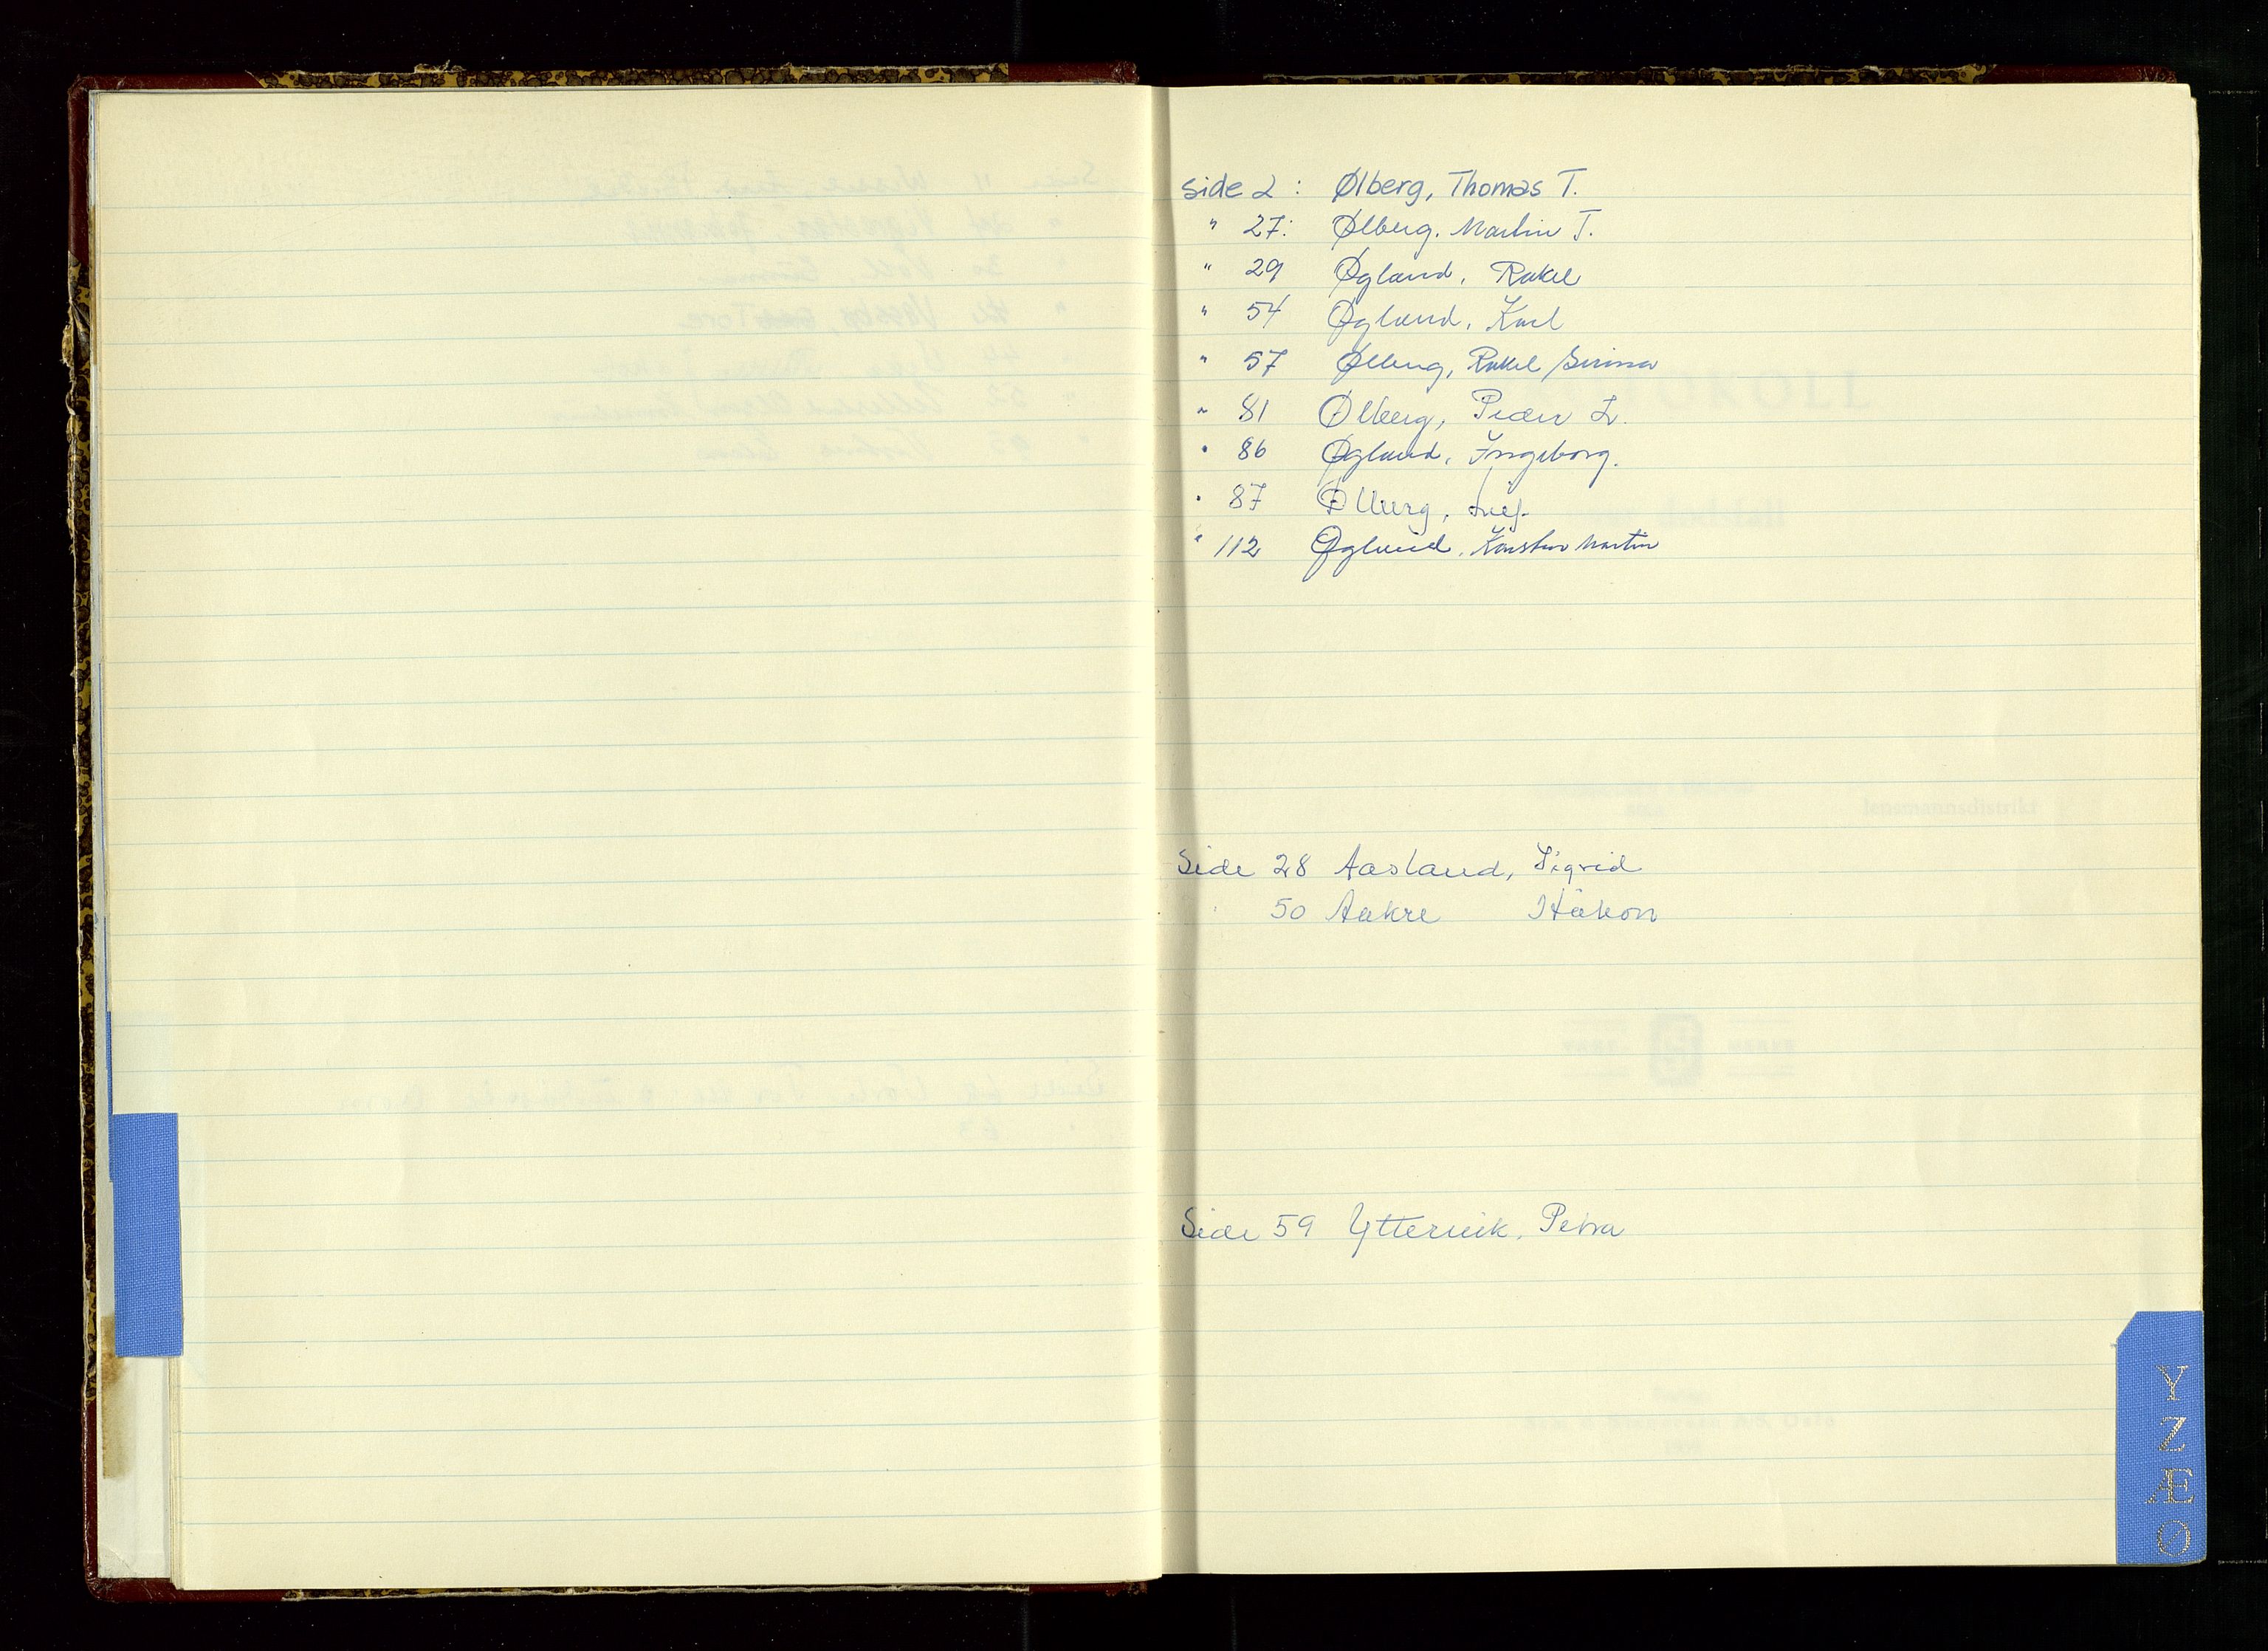 side 2 : Ølberg, Thomas T.
" 27: Ølberg. Martin T.
" 29 Øgland, Rakel
" 54 Øgland, Karl
" 57 Ølberg, Rakel Serina
" 81 Ølberg, Peder L.
" 86 Øgland, Ingeborg.
" 87 Ølberg, Leif
" 112 Øgland, Karsten Martin
Side 28 Aasland, Sigrid
50 Aakre Håkon
Side 59 Yttervik, Petra
Y
Z
Æ
Ø